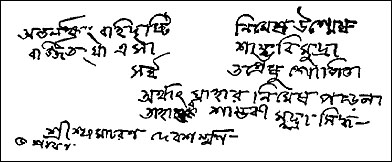 অন্তর্লক্ষ্য বাহিদৃষ্টি নিমেষ উন্মেষ
বর্জিত যা এসা শাম্ভবি মুদ্রা
সর্ব্ব তন্ত্রেষু গোপিতা
অর্থাৎ যাহার নিমেষ পড়েনা
শাম্ভবী মুদ্রা সিদ্ধ-
শ্রী শ্যামাচরণ দেবশর্ম্মণ